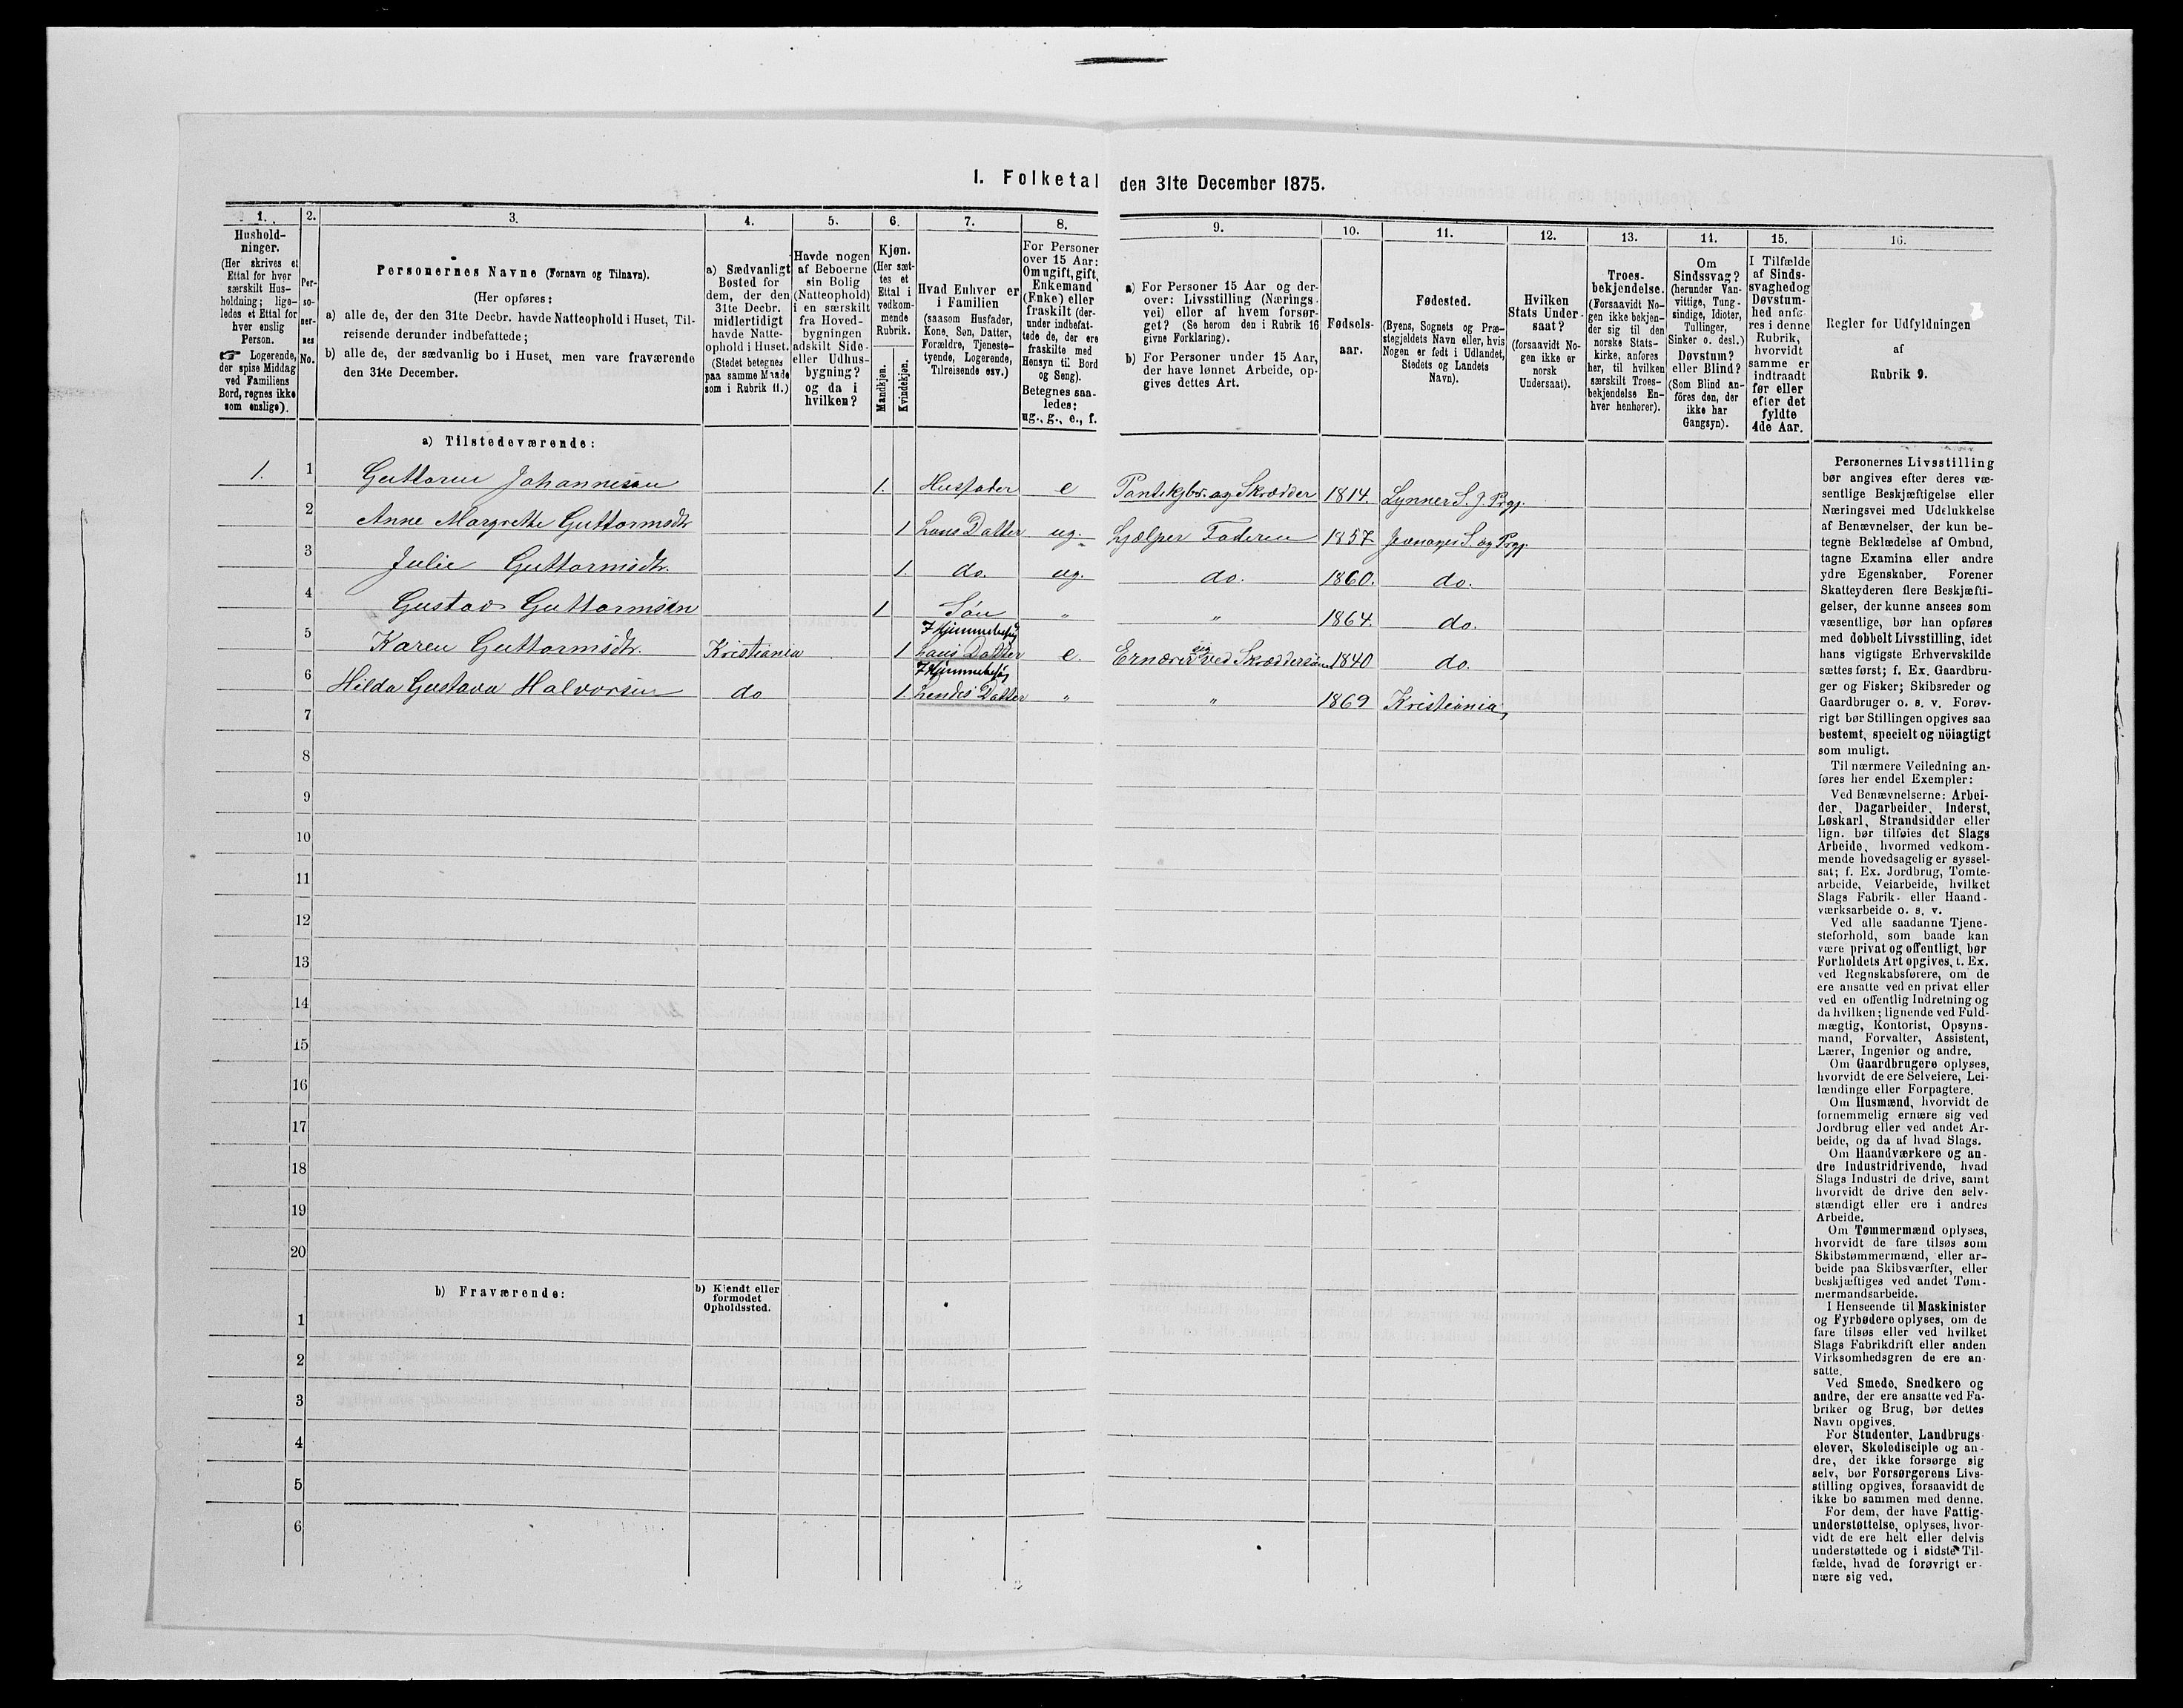 I. Folketal den 31te December 1875.
1. 2. 3. 4. 5. 6. 7. 8. 9. 10. 11. 12. 13. 14. 15. 16.
Hushold-
ninger.
(Her skrives et
Ettal for hver
særskilt Hus-
holdning; lige-
ledes et Ettal for
hver enslig
Person.
☞ Logerende,
der spise Middag
ved Familiens
Bord, regnes ikke
som enslige).
Per-
so-
ner-
nes
No.
Personernes Navne (Fornavn og Tilnavn).
(Her opføres:
a) alle de, der den 31te Decbr. havde Natteophold i Huset, Til-
reisende derunder indbefattede;
b) alle de, der sædvanlig bo i Huset, men vare fraværende
den 31te December.
a) Sædvanligt
Bosted for
dem, der den
31te Decbr.
midlertidigt
havde Natte-
ophold i Huset.
(Stedet betegnes
paa samme Maade
som i Rubrik 11.)
Havde nogen
af Beboerne
sin Bolig
(Natteophold)
i en særskilt
fra Hoved-
bygningen
adskilt Side-
eller Udhus-
bygning?
og da i
hvilken?
Kjøn.
(Her sæt-
tes et
Ettal i
vedkom-
mende
Rubrik.
Mandkjøn.
Kvindekjøn.
Hvad Enhver er
i Familien
(saasom Husfader,
Kone, Søn, Datter,
Forældre, Tjeneste-
tyende, Logerende,
Tilreisende osv.)
For Personer
over 15 Aar:
Om ugift, gift,
Enkemand
(Enke) eller
fraskilt (der-
under indbefat-
tede de, der ere
fraskilte med
Hensyn til Bord
og Seng).
Betegnes saa-
ledes:
ug., g., e., f.
a) For Personer 15 Aar og der-
over: Livsstilling (Nærings-
vei) eller af hvem forsør-
get? (Se herom den i Rubrik 16
givne Forklaring).
b) For Personer under 15 Aar,
der have lønnet Arbeide, op-
gives dettes Art.
Fødsels-
aar.
Fødested.
(Byens, Sognets og Præ-
stegjeldets Navn eller, hvis
Nogen er født i Udlandet,
Stedets og Landets
Navn).
Hvilken
Stats Under-
saat?
(forsaavidt No-
gen ikke er
norsk
Undersaat).
Troes-
bekjendelse.
(Forsaavidt No-
gen ikke bekjen-
der sig til den
norske Stats-
kirke, anføres
her, til hvilken
særskilt Troes-
bekjendelse En-
hver henhører).
Om
Sindssvag?
(herunder Van-
vittige, Tung-
sindige, Idioter,
Tullinger,
Sinker o. desl.)
Døvstum?
eller Blind?
(Som Blind an-
føres den, der
ikke har
Gangsyn).
I Tilfælde
af Sinds-
svaghedog
Døvstum-
hed anfø-
res i denne
Rubrik,
hvorvidt
samme er
indtraadt
før eller
efter det
fyldte
4de Aar.
Regler for Udfyldningen
af
Rubrik 9.
a) Tilstedeværende:
1. 1 Guttorm Johannesen 1. Husfader e Pantekjbr. og Skrædder 1814. Lynner S. J. Prgj.
2 Anne Margrethe Guttormsdtr 1 hans Datter ug. hjælper Faderen 1857 Jevnager S. og Prgj.
3 Julie Guttormsdtr. 1. do. ug. do. 1860. do.
4 Gustav Guttormsen 1 Søn „ „ 1864. do.
5 Karen Guttormsdtr. Kristiania 1 hans Datter e. Ernærer sig ved Skræddersøm 1840 do.
6 Hilda Gustava Halvorsen do 1. hendes Datter „ „ 1869 Kristiania
7
8
9
10
11
12
13
14
15
16
17
18
19
20
b) Fraværende:
b) Kjendt eller
formodet
Opholdssted.
1
2
3
4
5
6
Personernes Livsstilling
bør angives efter deres væ-
sentlige Beskjæftigelse eller
Næringsvei med Udelukkelse
af Benævnelser, der kun be-
tegne Beklædelse af Ombud,
tagne Examina eller andre
ydre Egenskaber. Forener
Skatteyderen flere Beskjæfti-
gelser, der kunne ansees som
væsentlige, bør han opføres
med dobbelt Livsstilling, idet
hans vigtigste Erhvervskilde
sættes først; f. Ex. Gaardbru-
ger og Fisker; Skibsreder og
Gaardbruger o. s. v. Forøv-
rigt bør Stillingen opgives saa
bestemt, specielt og nöiagtigt
som muligt.
Til nærmere Veiledning an-
føres her endel Exempler:
Ved Benævnelserne: Arbei-
der, Dagarbeider, Inderst,
Løskarl, Strandsidder eller
lign. bør tilføies det Slags
Arbeide, hvormed vedkom-
mende hovedsagelig er syssel-
sat; f. Ex. Jordbrug, Tomte-
arbeide, Veiarbeide, hvilket
Slags Fabrik- eller Haand-
værksarbeide o. s. v.
Ved alle saadanne Tjene-
steforhold, som baade kan
være privat og offentligt, bør
Forholdets Art opgives, t. Ex.
ved Regnskabsførere, om de
ere ansatte ved en privat eller
ved en offentlig Indretning og
da hvilken; lignende ved Fuld-
mægtig, Kontorist, Opsyns-
mand, Forvalter, Assistent,
Lærer, Ingeniør og andre.
Om Gaardbrugere oplyses,
hvorvidt de ere Selveiere, Lei-
lændinge eller Forpagtere.
Om Husmænd, hvorvidt de
fornemmelig ernære sig ved
Jordbrug eller ved andet Ar-
beide, og da af hvad Slags.
Om Haandværkere og an-
dre Industridrivende, hvad
Slags Industri de drive, samt
hvorvidt de drive den selv-
stændigt eller ere i andres
Arbeide.
Om Tømmermænd oplyses,
hvorvidt de fare tilsøs som
Skibstømmermænd, eller ar-
beide paa Skibsværfter, eller
beskjæftiges ved andet Tøm-
mermandsarbeide.
I Henseende til Maskinister
og Fyrbødere oplyses, om de
fare tilsøs eller ved hvilket
Slags Fabrikdrift eller anden
Virksomhedsgren de ere an-
satte.
Ved Smede, Snedkere og
andre, der ere ansatte ved Fa-
briker og Brug, bør dettes
Navn opgives.
For Studenter, Landbrugs-
elever, Skoledisciple og an-
dre, der ikke forsørge sig
selv, bør Forsørgerens Livs-
stilling opgives, forsaavidt de
ikke bo sammen med denne.
For dem, der have Fattig-
understøttelse, oplyses, hvor-
vidt de ere helt eller delvis
understøttede og i sidste Til-
fælde, hvad de forøvrigt er-
nære sig ved.